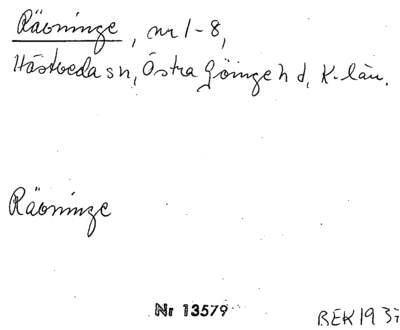 Rävninge, nr 1-8,
Hästveda sn, Östra Göinge hd, K-län.
Rävninge
Nr 13579
BEK 1937